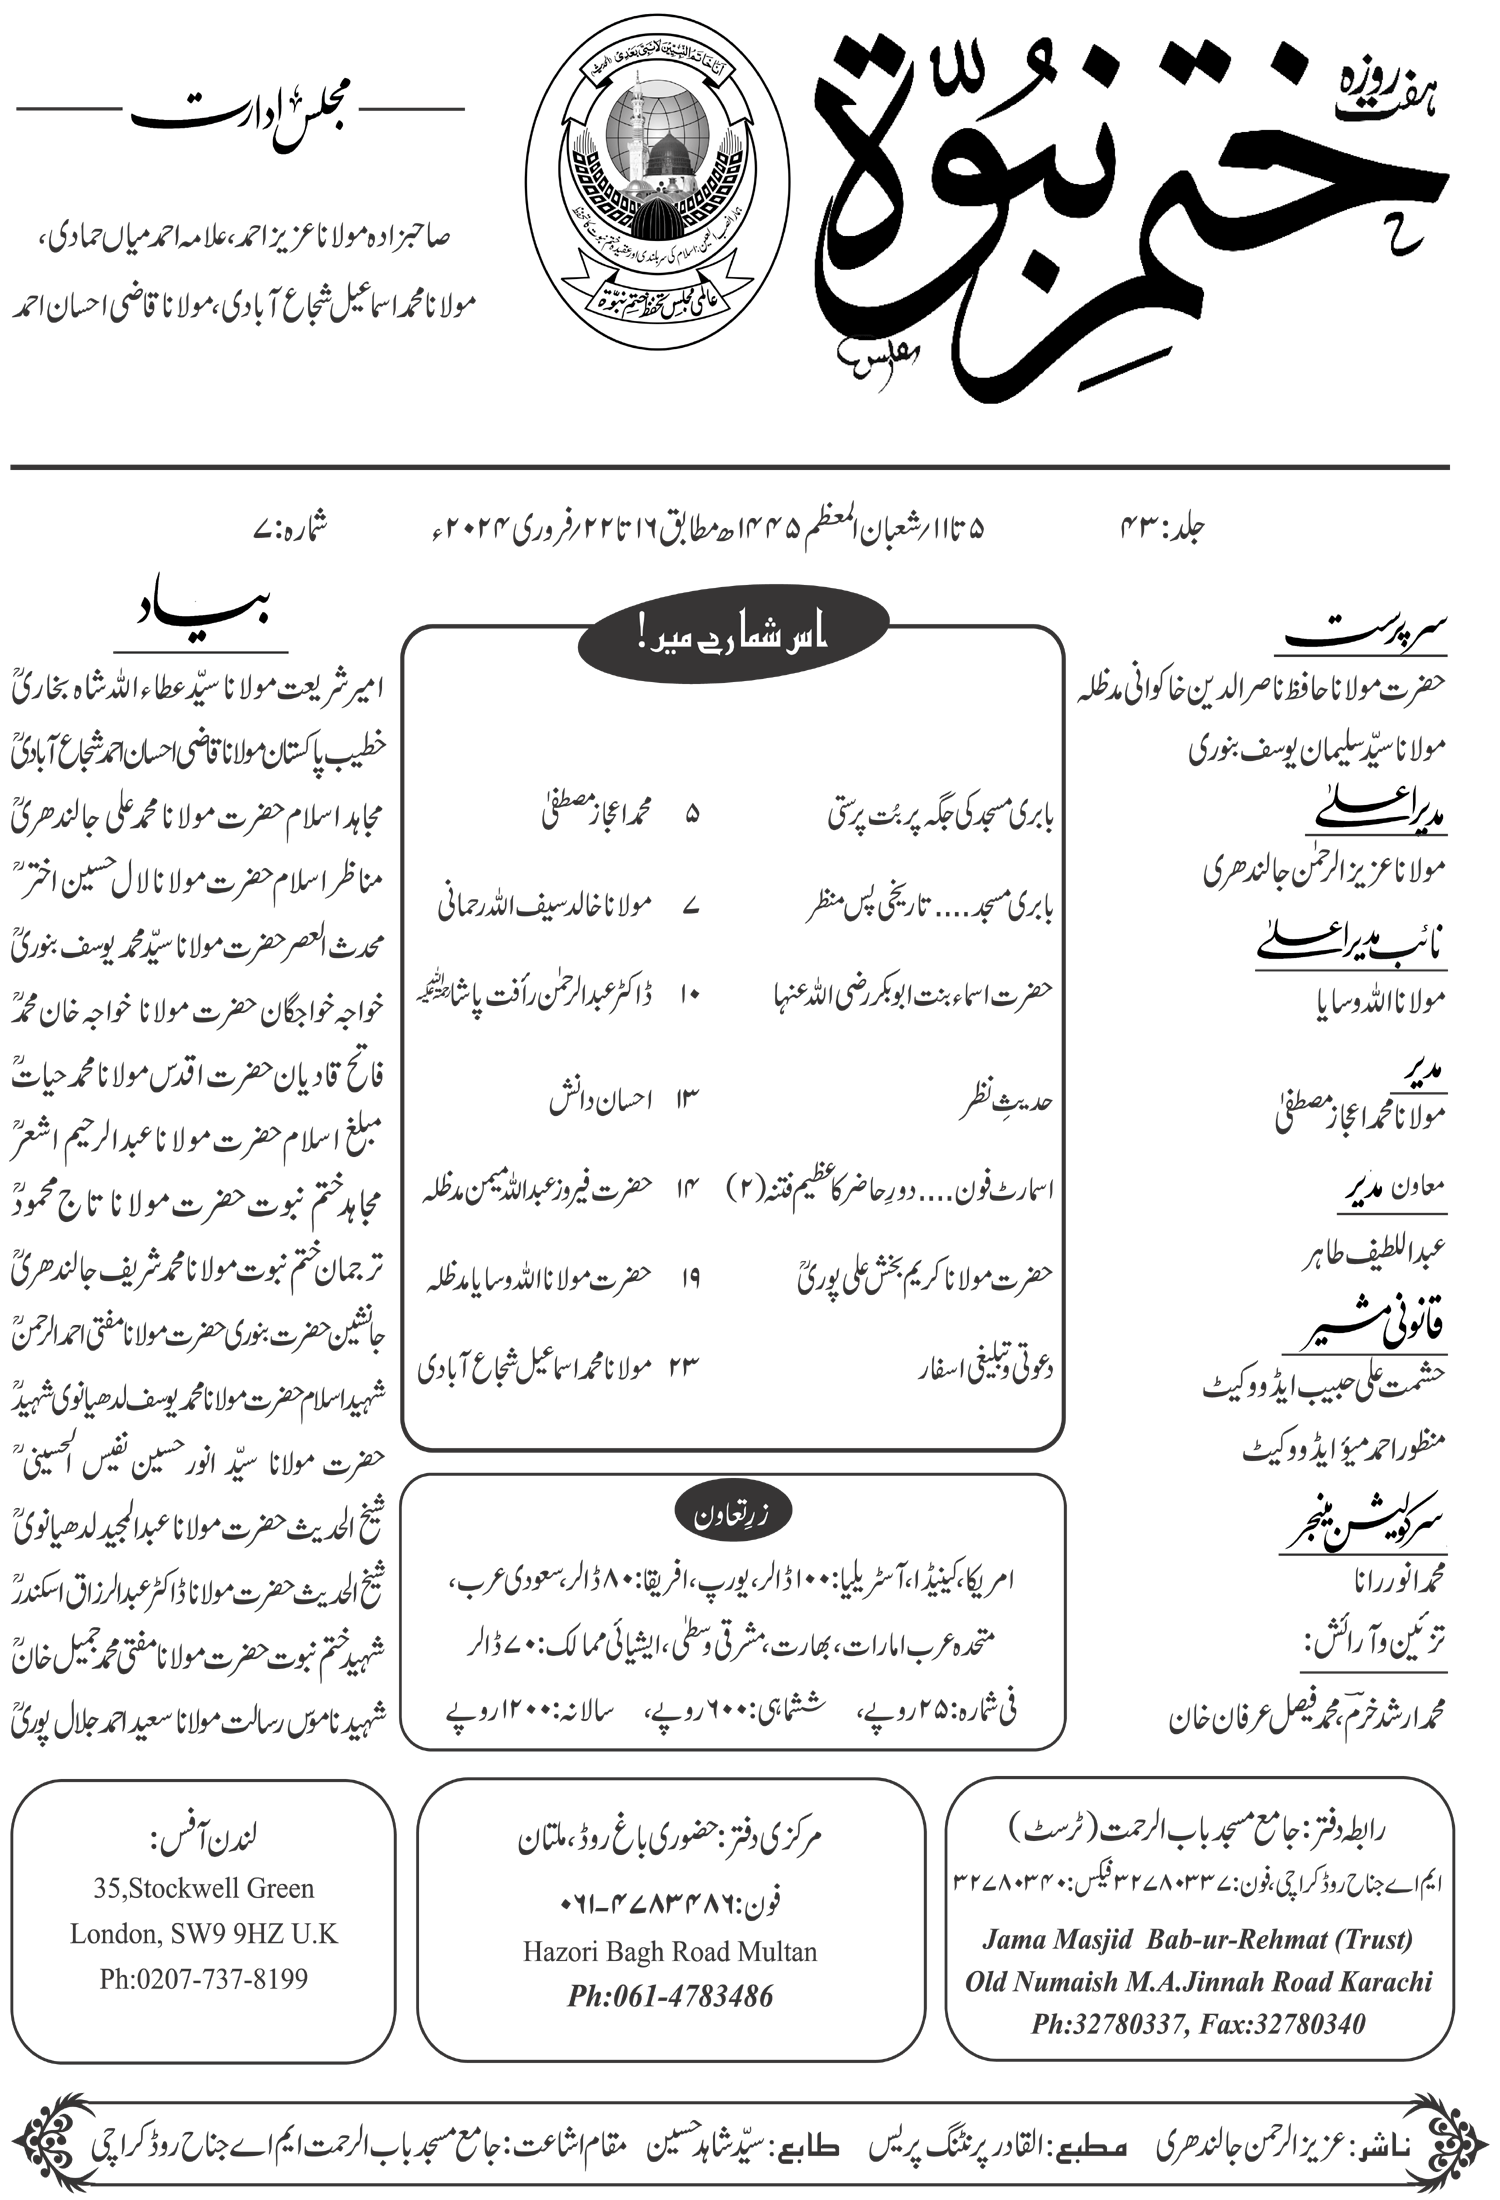 ہفت روزہ
ختم نبوّۃ
مجلس
انا خاتم النبیین لا نبی بعدی (الحدیث)
عالمی مجلس تحفظ ختم نبوّۃ
مجلس ادارت
صاحبزادہ مولانا عزیز احمد، علامہ احمد میاں حمادی،
مولانا محمد اسماعیل شجاع آبادی، مولانا قاضی احسان احمد
جلد: ۴۳
۵ تا ۱۱/شعبان المعظم ۱۴۴۵ھ مطابق ۱۶ تا ۲۲/فروری ۲۰۲۴ء
شمارہ: ۷
سرپرست
حضرت مولانا حافظ ناصر الدین خاکوانی مدظلہ
مولانا سیّد سلیمان یوسف بنوری
مدیر اعلیٰ
مولانا عزیز الرحمٰن جالندھری
نائب مدیر اعلیٰ
مولانا اللہ وسایا
مدیر
مولانا محمد اعجاز مصطفیٰ
معاون مدیر
عبداللطیف طاہر
قانونی مشیر
حشمت علی حبیب ایڈووکیٹ
منظور احمد میؤ ایڈووکیٹ
سرکولیشن مینجر
محمد انور رانا
تزئین و آرائش:
محمد ارشد خرم، محمد فیصل عرفان خان
اس شمارے میں!
بابری مسجد کی جگہ پر بُت پرستی ۵ محمد اعجاز مصطفیٰ
بابری مسجد .... تاریخی پس منظر ۷ مولانا خالد سیف اللہ رحمانی
حضرت اسماء بنت ابوبکر رضی اللہ عنہا ۱۰ ڈاکٹر عبدالرحمٰن رأفت پاشاؒ
حدیثِ نظر ۱۳ احسان دانش
اسمارٹ فون .... دورِ حاضر کا عظیم فتنہ (۲) ۱۴ حضرت فیروز عبداللہ میمن مدظلہ
حضرت مولانا کریم بخش علی پوریؒ ۱۹ حضرت مولانا اللہ وسایا مدظلہ
دعوتی و تبلیغی اسفار ۲۳ مولانا محمد اسماعیل شجاع آبادی
زرِ تعاون
امریکا، کینیڈا، آسٹریلیا: ۱۰۰ ڈالر، یورپ، افریقا: ۸۰ ڈالر، سعودی عرب،
متحدہ عرب امارات، بھارت، مشرقی وسطٰی، ایشیائی ممالک: ۷۰ ڈالر
فی شمارہ: ۲۵ روپے، ششماہی: ۶۰۰ روپے، سالانہ: ۱۲۰۰ روپے
بیاد
امیر شریعت مولانا سیّد عطاء اللہ شاہ بخاریؒ
خطیب پاکستان مولانا قاضی احسان احمد شجاع آبادیؒ
مجاہد اسلام حضرت مولانا محمد علی جالندھریؒ
مناظر اسلام حضرت مولانا لال حسین اخترؒ
محدث العصر حضرت مولانا سیّد محمد یوسف بنوریؒ
خواجہ خواجگان حضرت مولانا خواجہ خان محمدؒ
فاتح قادیان حضرت اقدس مولانا محمد حیاتؒ
مبلغ اسلام حضرت مولانا عبدالرحیم اشعرؒ
مجاہد ختم نبوت حضرت مولانا تاج محمودؒ
ترجمان ختم نبوت مولانا محمد شریف جالندھریؒ
جانشین حضرت بنوری حضرت مولانا مفتی احمد الرحمنؒ
شہید اسلام حضرت مولانا محمد یوسف لدھیانوی شہیدؒ
حضرت مولانا سیّد انور حسین نفیس الحسینیؒ
شیخ الحدیث حضرت مولانا عبدالمجید لدھیانویؒ
شیخ الحدیث حضرت مولانا ڈاکٹر عبدالرزاق اسکندرؒ
شہید ختم نبوت حضرت مولانا مفتی محمد جمیل خانؒ
شہید ناموس رسالت مولانا سعید احمد جلال پوریؒ
رابطہ دفتر: جامع مسجد باب الرحمت (ٹرسٹ)
ایم اے جناح روڈ کراچی، فون: ۳۲۷۸۰۳۳۷ فیکس: ۳۲۷۸۰۳۴۰
Jama Masjid Bab-ur-Rehmat (Trust)
Old Numaish M.A.Jinnah Road Karachi
Ph:32780337, Fax:32780340
مرکزی دفتر: حضوری باغ روڈ، ملتان
فون: ۰۶۱-۴۷۸۳۴۸۶
Hazori Bagh Road Multan
Ph:061-4783486
لندن آفس:
35,Stockwell Green
London, SW9 9HZ U.K
Ph:0207-737-8199
ناشر: عزیز الرحمن جالندھری مطبع: القادر پرنٹنگ پریس طابع: سیّد شاہد حسین مقام اشاعت: جامع مسجد باب الرحمت ایم اے جناح روڈ کراچی